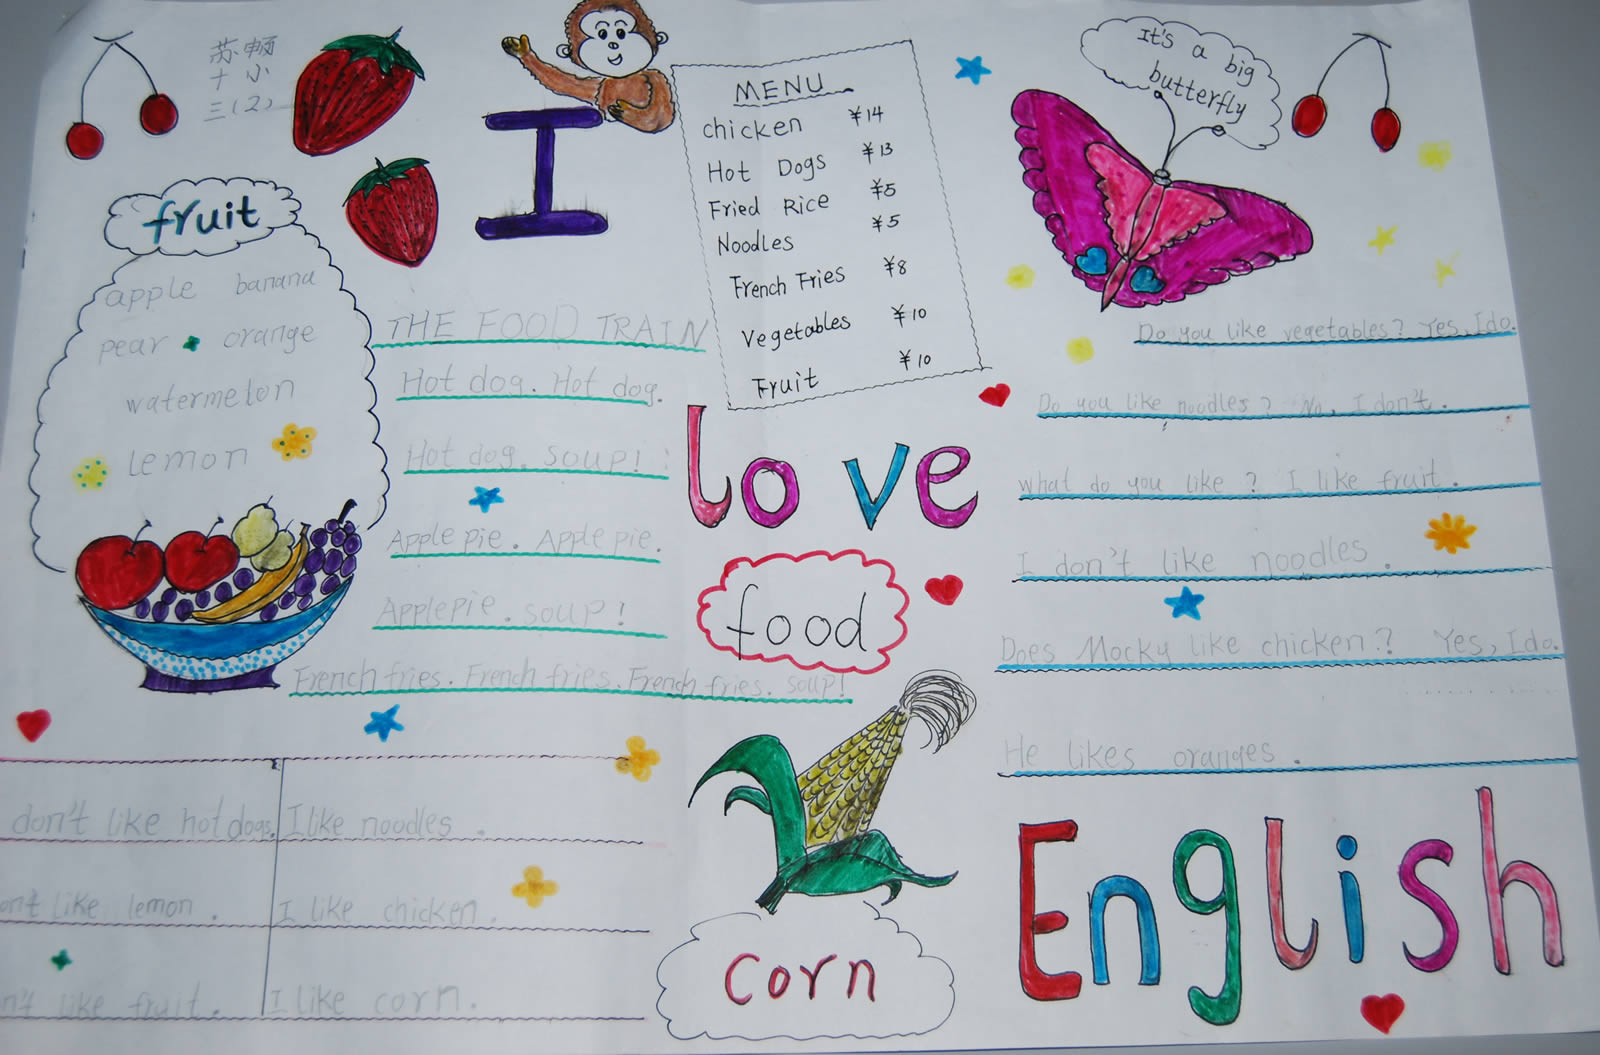 苏顺
十小
三(2)
I
MENU
chicken ¥14
Hot Dogs ¥13
Fried Rice ¥5
Noodles ¥5
French Fries ¥8
Vegetables ¥10
Fruit ¥10
It's a big
butterfly
fruit
apple banana
pear orange
watermelon
lemon
THE FOOD TRAIN
Hot dog. Hot dog.
Hot dog. soup!
Apple pie. Apple pie.
Apple pie. soup!
French fries. French fries. French fries. soup!
love
food
Do you like vegetables? Yes, I do.
Do you like noodles? No, I don't.
what do you like? I like fruit.
I don't like noodles.
Does Mocky like chicken? Yes, I do.
He likes oranges.
don't like hot dogs. I like noodles.
on't like lemon. I like chicken.
n't like fruit. I like corn.
corn
English